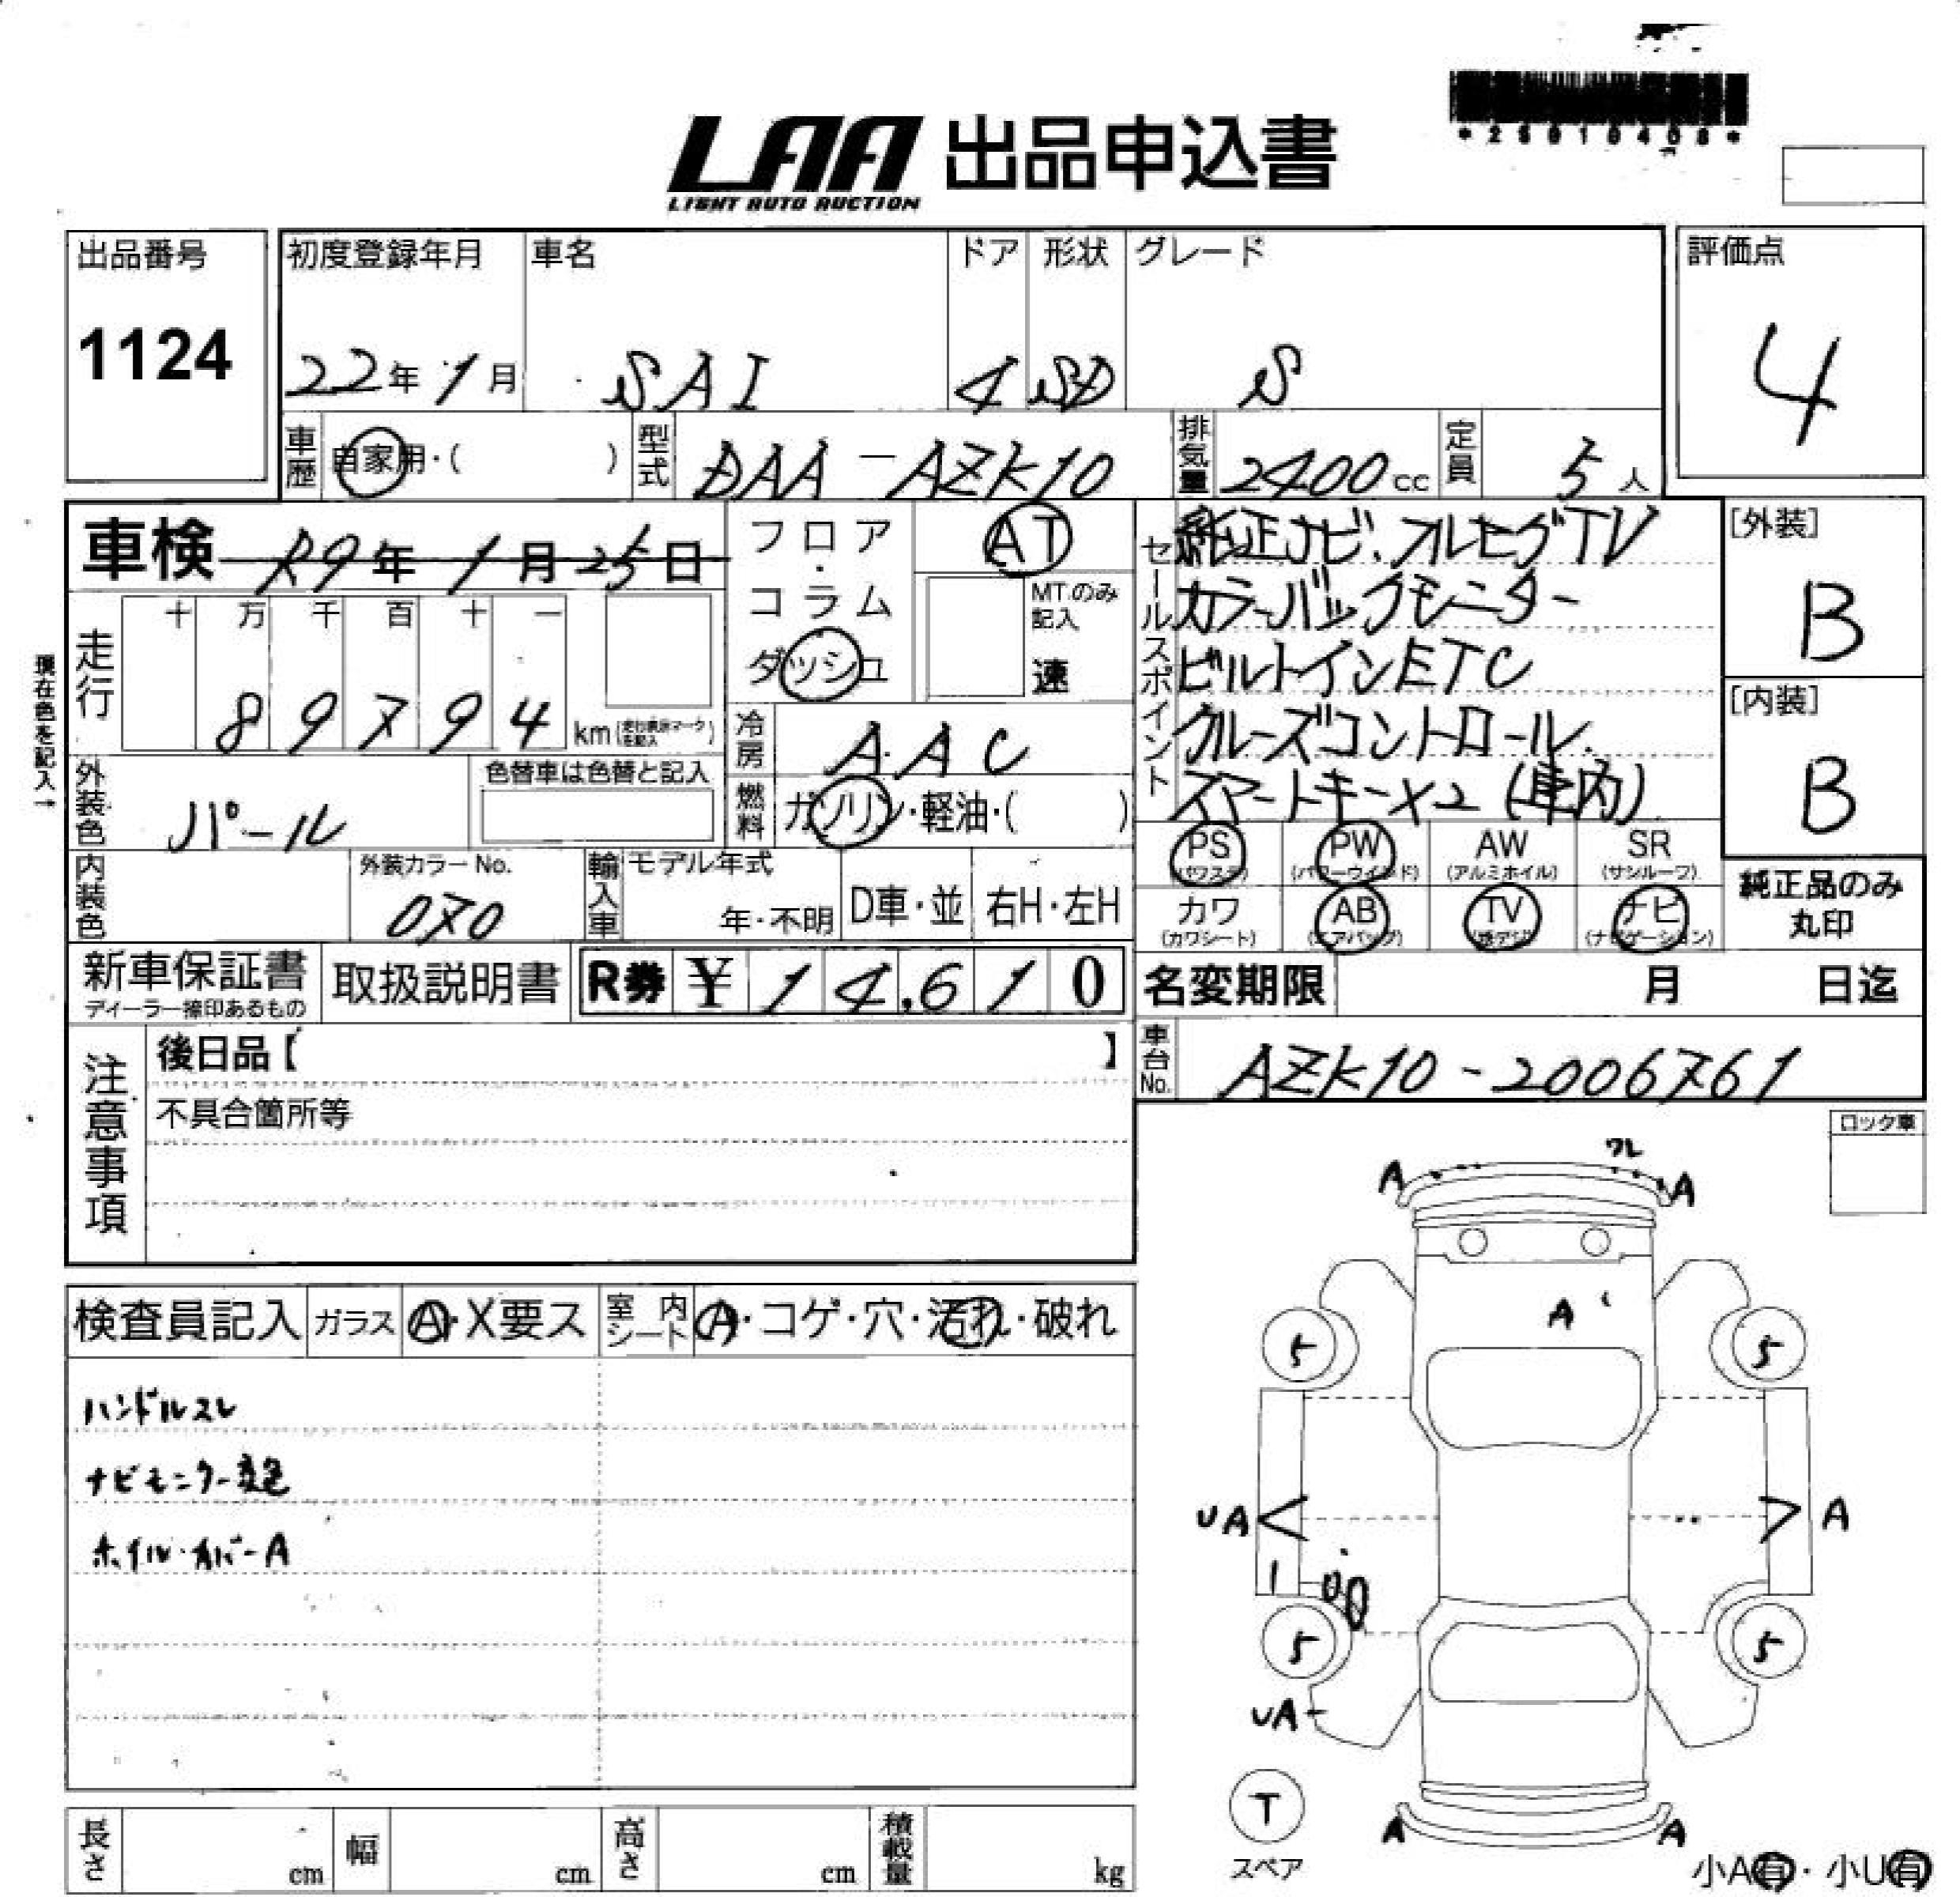 *23010408*
LAA 出品申込書
LIGHT AUTO AUCTION
出品番号
1124
初度登録年月
22年1月
車名
SAI
ドア
4
形状
SD
グレード
S
評価点
4
車歴
自家用・( )
型式
DAA-AZK10
排気量
2400cc
定員
5人
車検 R9年1月25日
フロア・コラム
ダッシュ
AT
MTのみ記入
速
セールスポイント
純正ナビ、フルセグTV
カラーバックモニター
ビルトインETC
クルーズコントロール
スマートキー×2(車内)
[外装]
B
[内装]
B
現在色を記入→
走行
十 万 千 百 十 一
89794 km
冷房
AAC
外装色
パール
色替車は色替と記入
燃料
ガソリン・軽油・( )
PS (パワステ)
PW (パワーウインド)
AW (アルミホイル)
SR (サンルーフ)
カワ (カワシート)
AB (エアバッグ)
TV (地デジ)
ナビ (ナビゲーション)
純正品のみ
丸印
内装色
外装カラーNo.
070
輸入車
モデル年式
年・不明
D車・並
右H・左H
新車保証書
ディーラー捺印あるもの
取扱説明書
R券 ¥14,610
名変期限 月 日迄
車台No.
AZK10-2006761
注意事項
後日品【 】
不具合箇所等
ロック車
検査員記入
ガラス
A・X要ス
室内シート
A・コゲ・穴・汚れ・破れ
ハンドルスレ
ナビモニター変色
ホイルカバーA
A
ワレ
A
A
5
5
UA
A
5
5
UA
T
スペア
A
A
小A有・小U有
長さ cm
幅 cm
高さ cm
積載量 kg